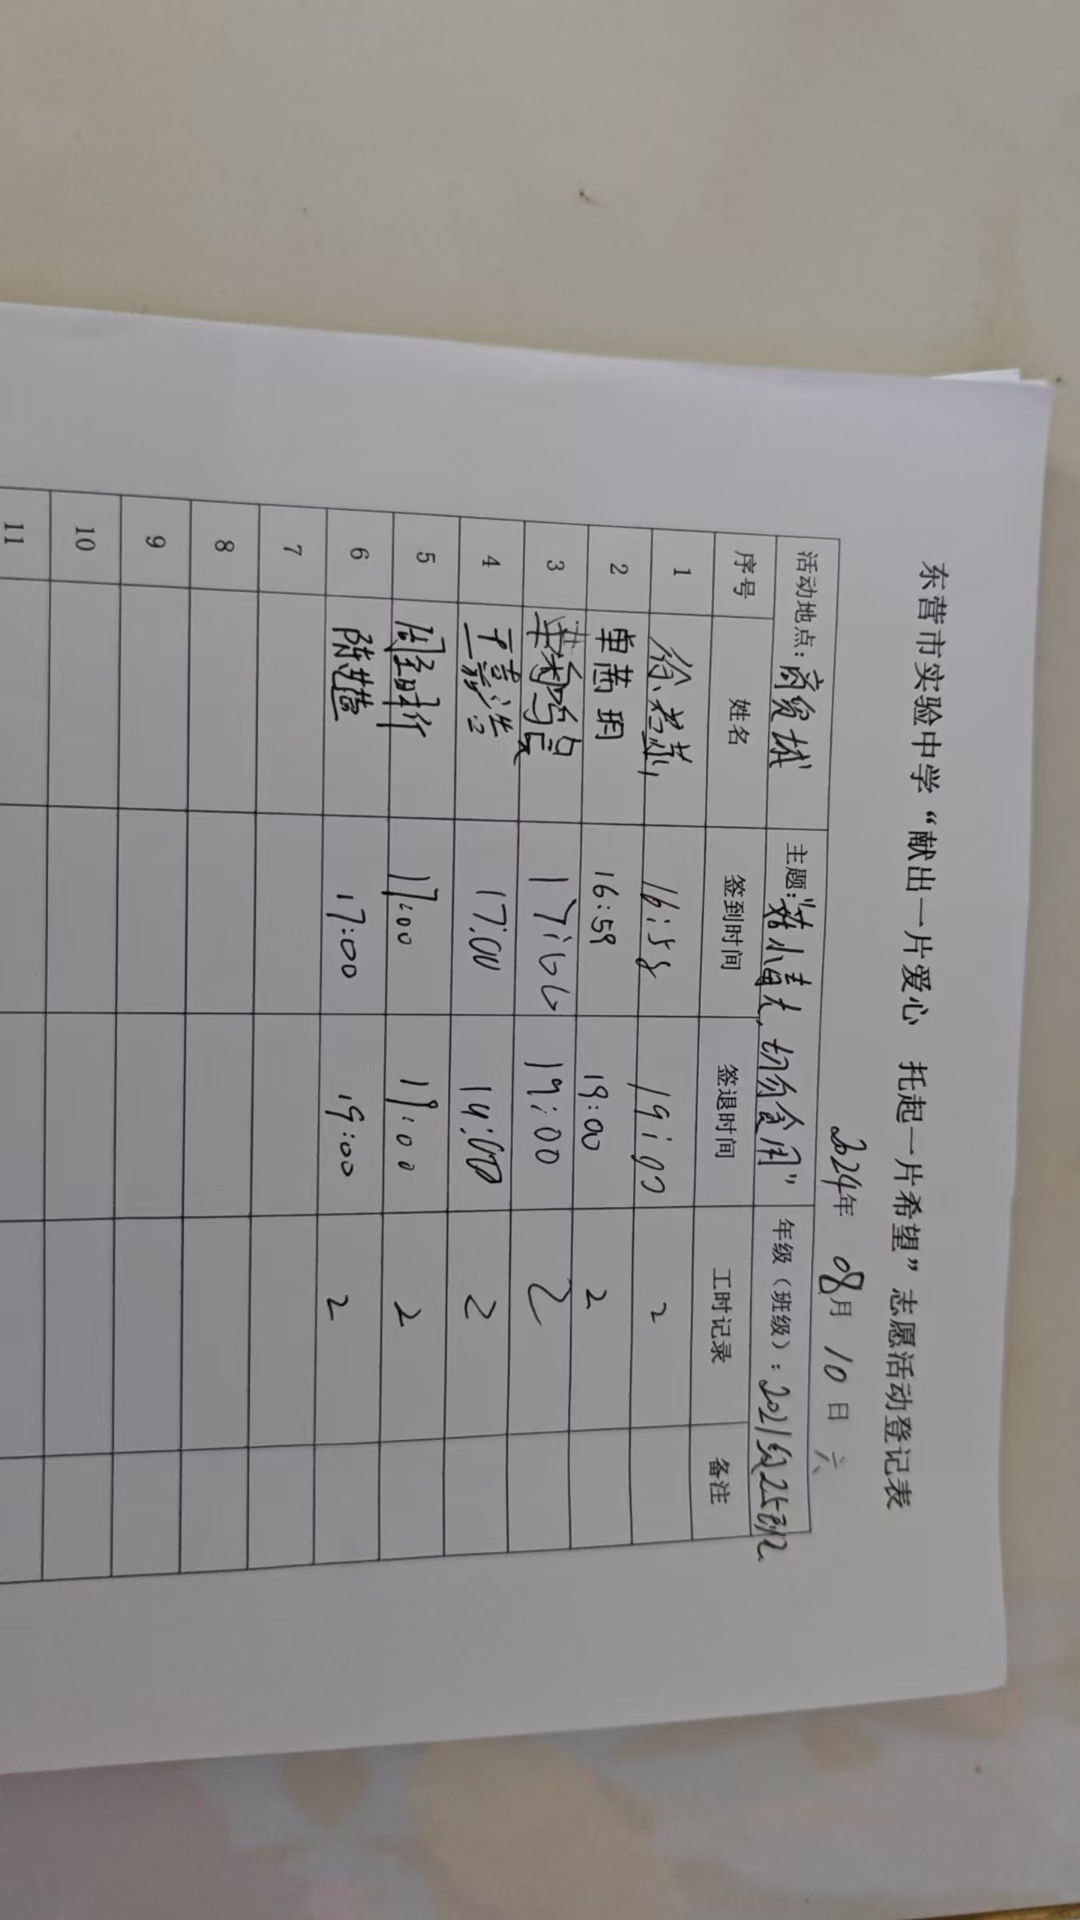 东营市实验中学“献出一片爱心 托起一片希望”志愿活动登记表
2024年 08月 10日 六
活动地点：商贸城 主题：“菇小毒大，切勿食用” 年级（班级）：2021级25班
序号 姓名 签到时间 签退时间 工时记录 备注
1 徐 16:58 19:00 2
2 单茜玥 16:59 19:00 2
3 17:00 19:00 2
4 17:00 19:00 2
5 周 17:00 19:00 2
6 陈 17:00 19:00 2
7
8
9
10
11